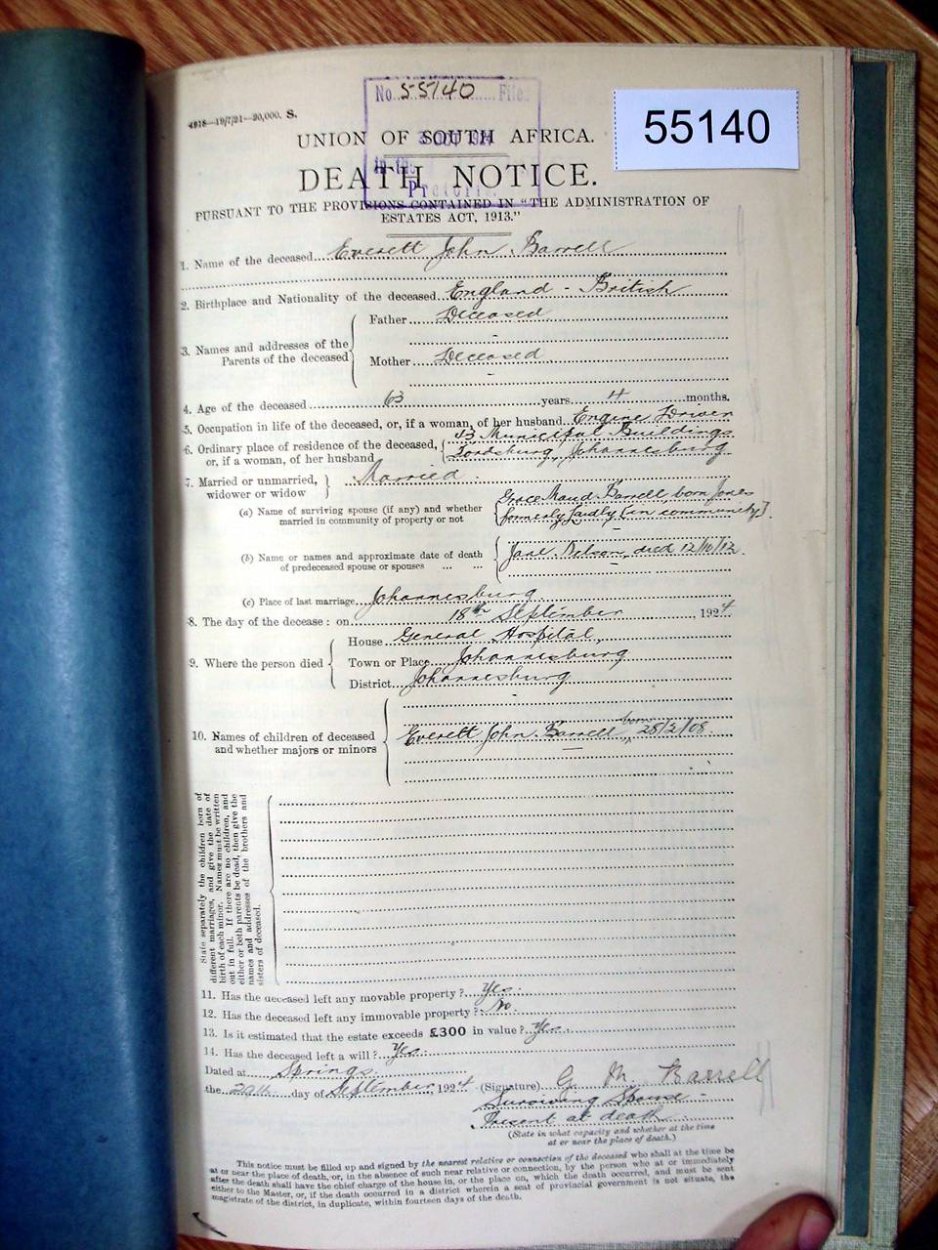 4818—19/7/21—20,000. S.
No. 55140 File
55140
UNION OF SOUTH AFRICA.
DEATH NOTICE.
Pretoria
PURSUANT TO THE PROVISIONS CONTAINED IN "THE ADMINISTRATION OF
ESTATES ACT, 1913."
1. Name of the deceased Everett John Barrell
2. Birthplace and Nationality of the deceased England - British
3. Names and addresses of the Parents of the deceased
Father Deceased
Mother Deceased
4. Age of the deceased 63 years 4 months.
5. Occupation in life of the deceased, or, if a woman, of her husband Engine Driver
6. Ordinary place of residence of the deceased, 43 Municipal Buildings
or, if a woman, of her husband Fordsburg, Johannesburg
7. Married or unmarried, widower or widow Married.
(a) Name of surviving spouse (if any) and whether Grace Maud Barrell born Jones
married in community of property or not formerly (in community).
(b) Name or names and approximate date of death Jane died
of predeceased spouse or spouses ... ...
(c) Place of last marriage Johannesburg
8. The day of the decease: on 18th September, 1924
9. Where the person died
House General Hospital,
Town or Place Johannesburg
District Johannesburg
10. Names of children of deceased
and whether majors or minors Everett John Barrell born 28/2/08.
State separately the children born of
different marriages, and give the date of
birth of each minor. Names must be written
out in full. If there are no children, and
either or both parents be dead, then give the
names and addresses of the brothers and
sisters of deceased.
11. Has the deceased left any movable property? Yes.
12. Has the deceased left any immovable property? No.
13. Is it estimated that the estate exceeds £300 in value? Yes.
14. Has the deceased left a will? Yes.
Dated at Springs.
the day of September, 1924 (Signature) G. M. Barrell
Surviving Spouse -
Present at death
(State in what capacity and whether at the time
at or near the place of death.)
This notice must be filled up and signed by the nearest relative or connection of the deceased who shall at the time be
at or near the place of death, or, in the absence of such near relative or connection, by the person who at or immediately
after the death shall have the chief charge of the house in, or the place on, which the death occurred, and must be sent
either to the Master, or, if the death occurred in a district wherein a seat of provincial government is not situate, the
magistrate of the district, in duplicate, within fourteen days of the death.